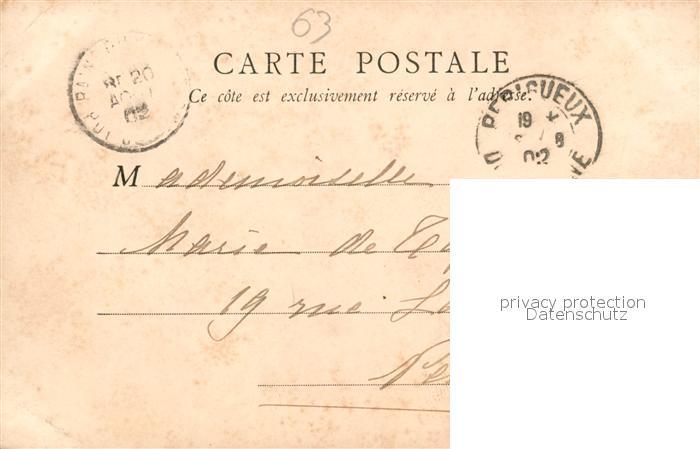 63
CARTE POSTALE
Ce côte est exclusivement réservé à l'adresse.
PERIGUEUX
19
02
Mademoiselle
Marie de
19 rue
privacy protection
Datenschutz